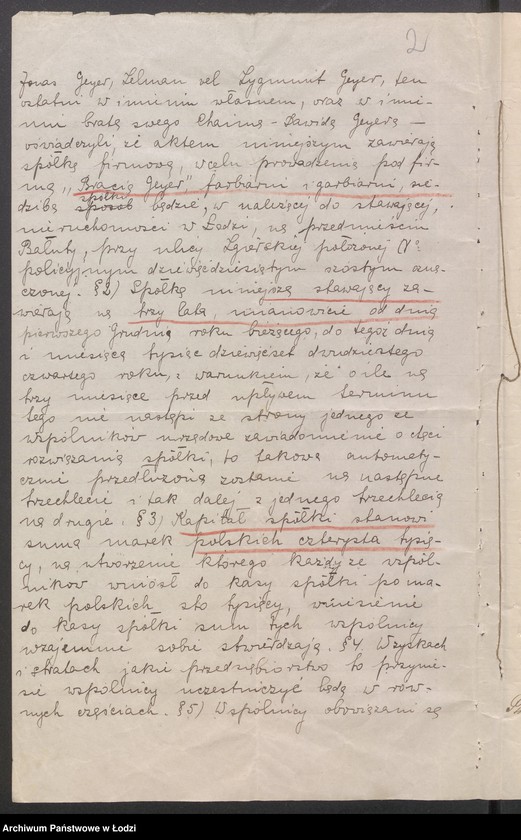 2
Jonas Geyer, Zelman vel Zygmunt Geyer, ten
ostatni w imieniu własnem, oraz w imie-
niu brata swego Chaima-Dawida Geyera —
oświadczyli, że aktem niniejszym zawierają
spółkę firmową, w celu prowadzenia pod fir-
mą „Bracia Geyer", farbiarni i garbiarni, sie-
dzibą spółki będzie, w należącej do stawającej,
nieruchomości w Łodzi, na przedmieściu
Bałuty, przy ulicy Zgierskiej położonej No
policyjnym dziewięćdziesiątym szóstym ozna-
czonej. § 2) Spółkę niniejszą stawający za-
wierają na trzy lata, mianowicie od dnia
pierwszego Grudnia roku bieżącego, do tegoż dnia
i miesiąca tysiąc dziewięćset dwudziestego
czwartego roku, z warunkiem, że o ile na
trzy miesiące przed upływem terminu
tego nie nastąpi ze strony jednego ze
wspólników urzędowe zawiadomienie o chęci
rozwiązania spółki, to takowa automaty-
cznie przedłużoną zostanie na następne
trzechlecie i tak dalej z jednego trzechlecia
na drugie. § 3) Kapitał spółki stanowi
suma marek polskich czterysta tysię-
cy, na utworzenie którego każdy ze wspól-
ników wniósł do kasy spółki po ma-
rek polskich sto tysięcy, wniesienie
do kasy spółki sum tych wspólnicy
wzajemnie sobie stwierdzają. § 4. W zyskach
i stratach jakie przedsiębiorstwo to przynie-
sie wspólnicy uczestniczyć będą w rów-
nych częściach. § 5) Wspólnicy obowiązani są
Archiwum Państwowe w Łodzi